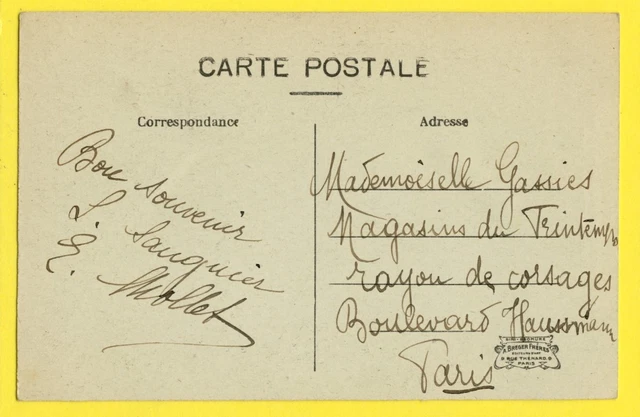 CARTE POSTALE
Correspondance
Bon souvenir
L. Sauquier
E. Mollet
Adresse
Mademoiselle Gassies
Magasins du Printemps
rayon de corsages
Boulevard Haussmann
Paris
BREGER FRÈRES
9 RUE THÉNARD. 9
PARIS